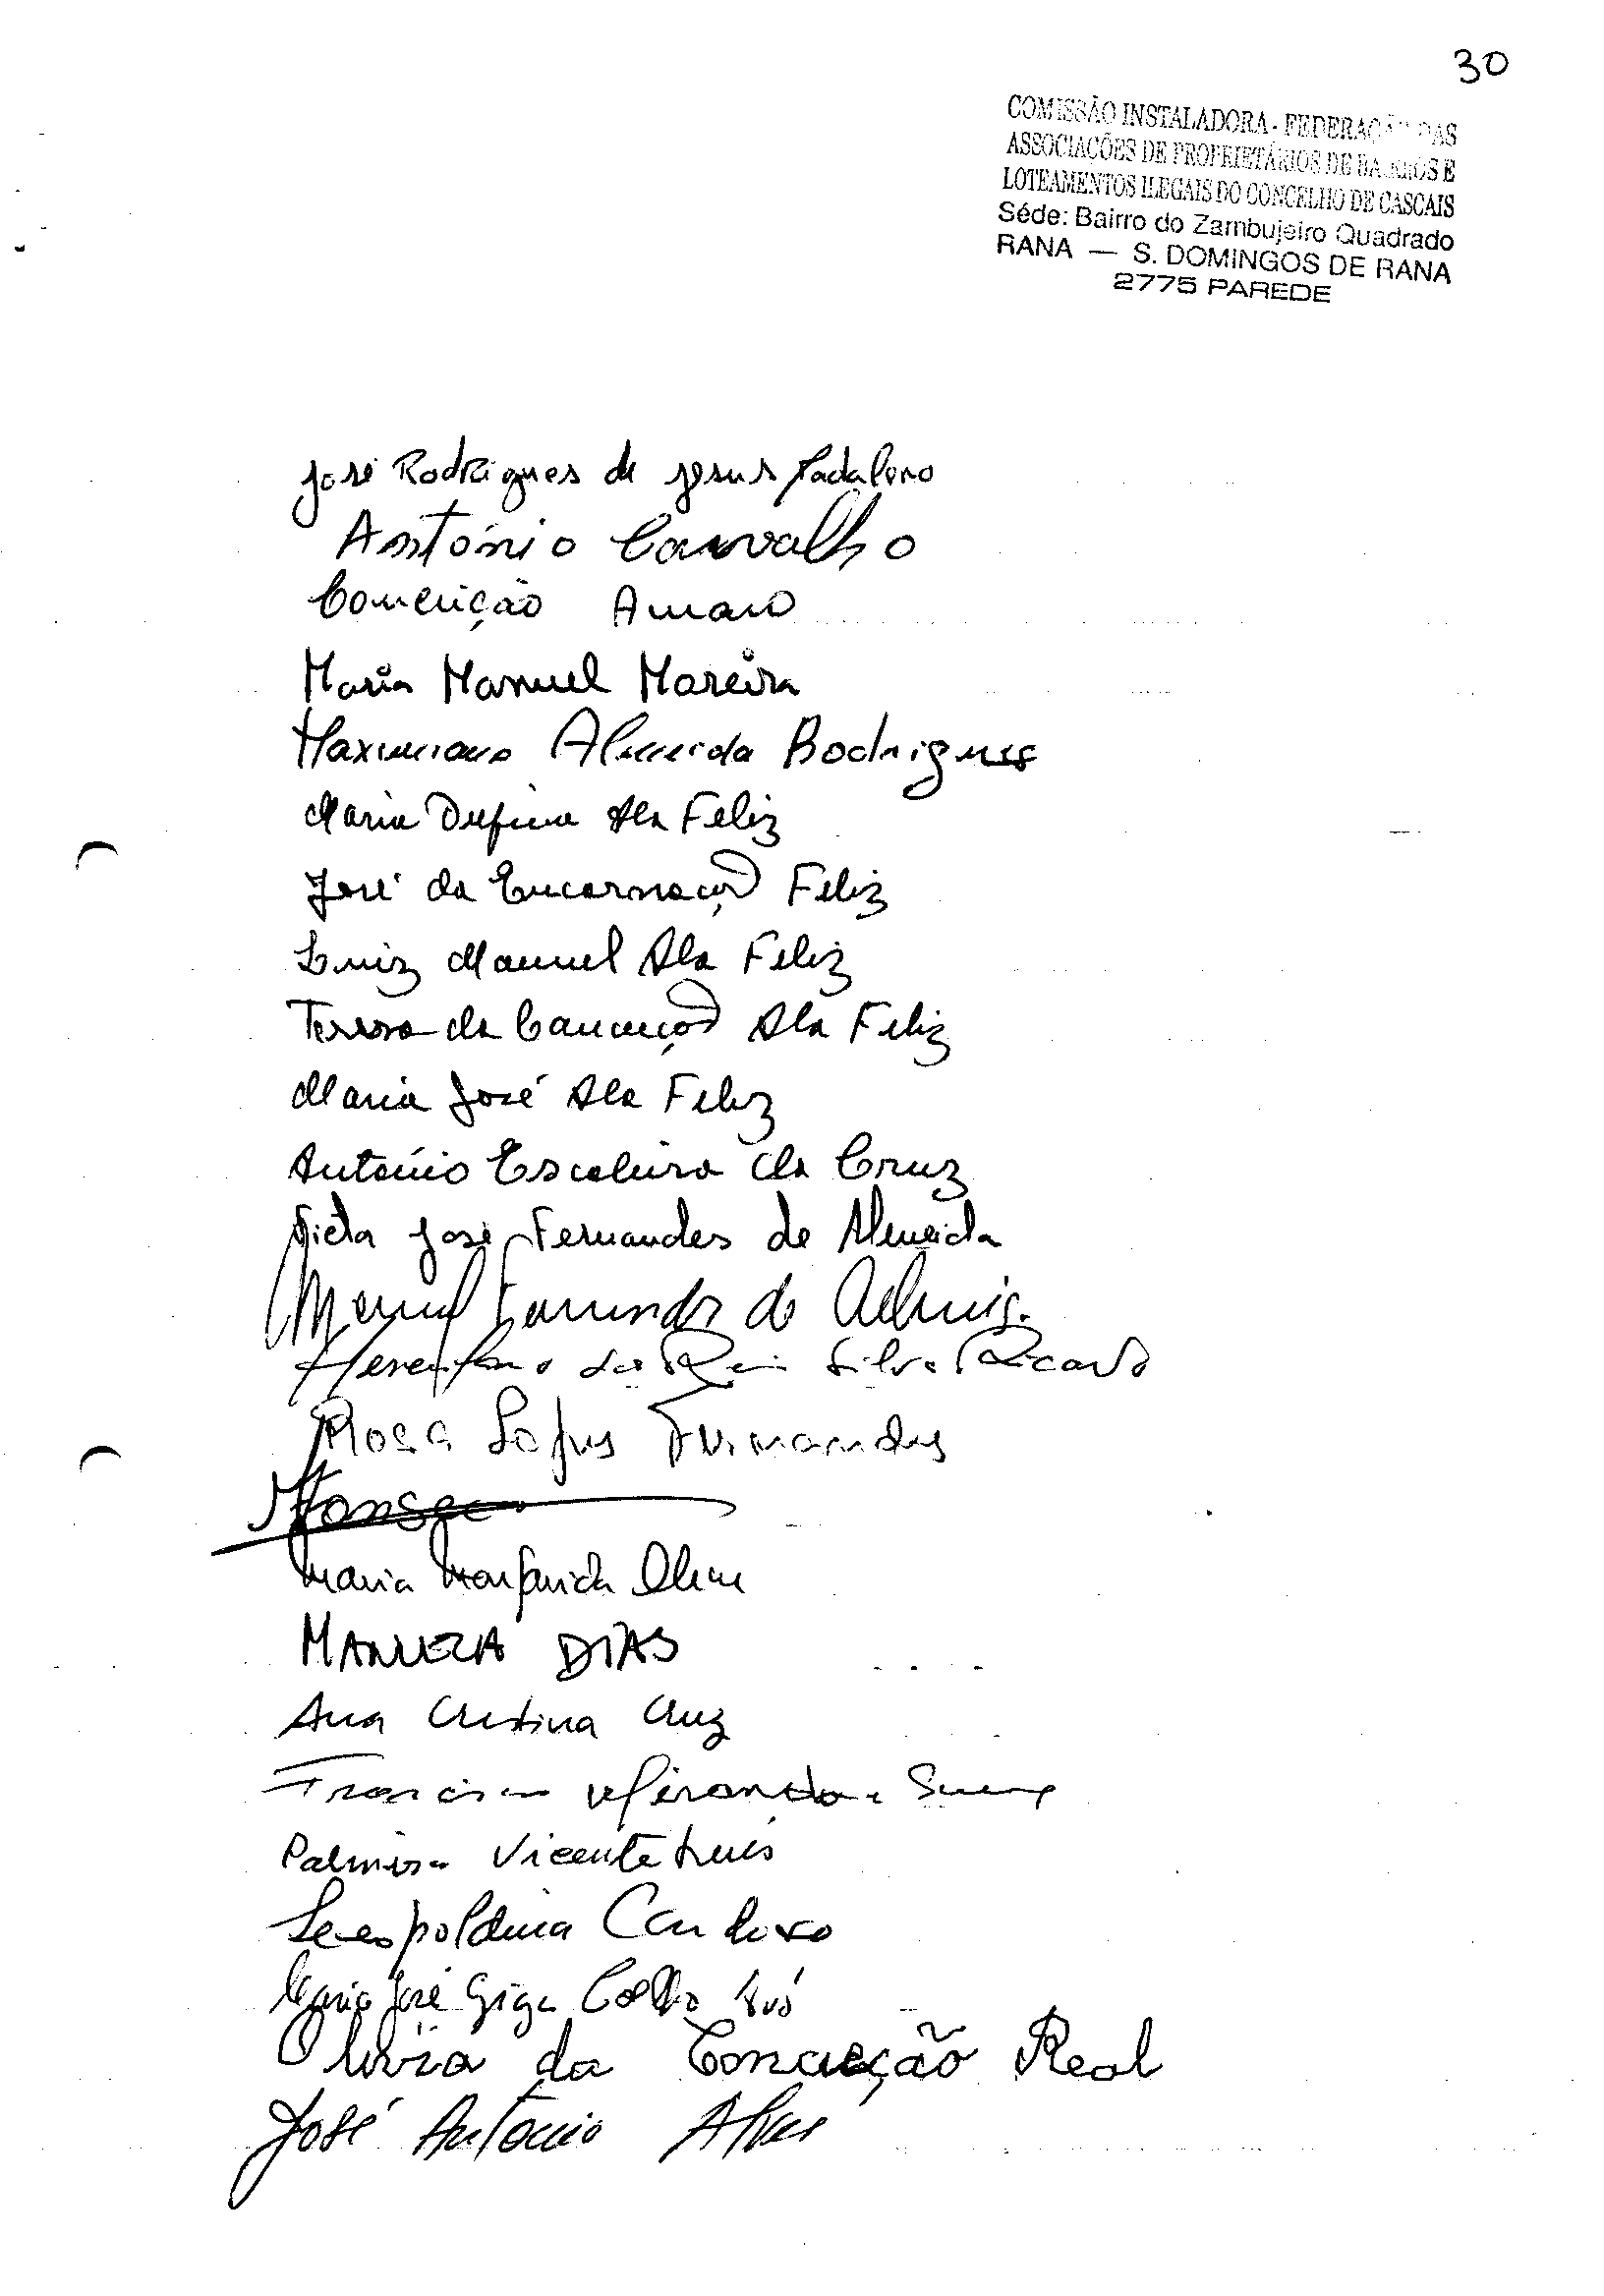 30
COMISSÃO INSTALADORA - FEDERAÇÃO DAS
ASSOCIAÇÕES DE PROPRIETÁRIOS DE BAIRROS E
LOTEAMENTOS ILEGAIS DO CONCELHO DE CASCAIS
Séde: Bairro do Zambujeiro Quadrado
RANA — S. DOMINGOS DE RANA
2775 PAREDE
José Rodrigues de Jesus
António Carvalho
Conceição Amaro
Maria Manuel Moreira
Maximiano Almeida Rodrigues
Maria Ala Feliz
José da Encarnação Feliz
Luiz Manuel Ala Feliz
Teresa da Conceição Ala Feliz
Maria José Ala Feliz
António Escaleira da Cruz
José Fernandes de Almeida
Manuel de
da Silva Ricardo
Rosa Lopes Fernandes
Fonseca
Maria Margarida
MANUELA DIAS
Ana Cristina Cruz
Francisco Miranda
Palmira Vicente Luís
Leopoldina Cardoso
Maria José Giga Coelho
Olivia da Conceição Real
José António Alves